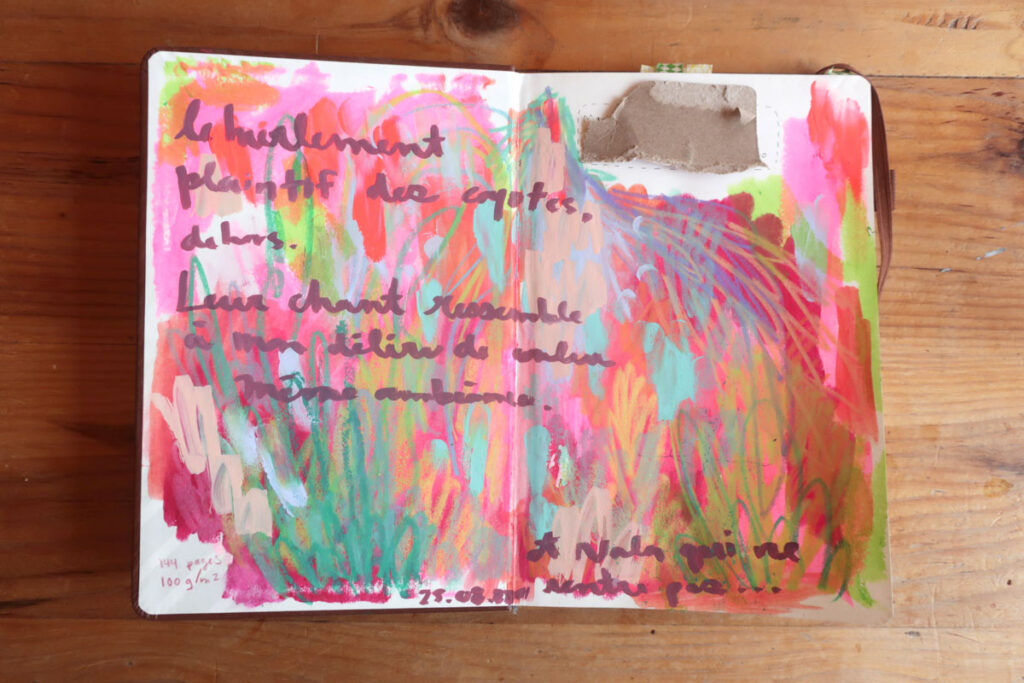 le hurlement
plaintif des coyotes,
dehors.
Leur chant ressemble
à mon délire de
même ambiance.
et Nala qui ne
rentre pas...
25.08.
144 pages
100 g/m2